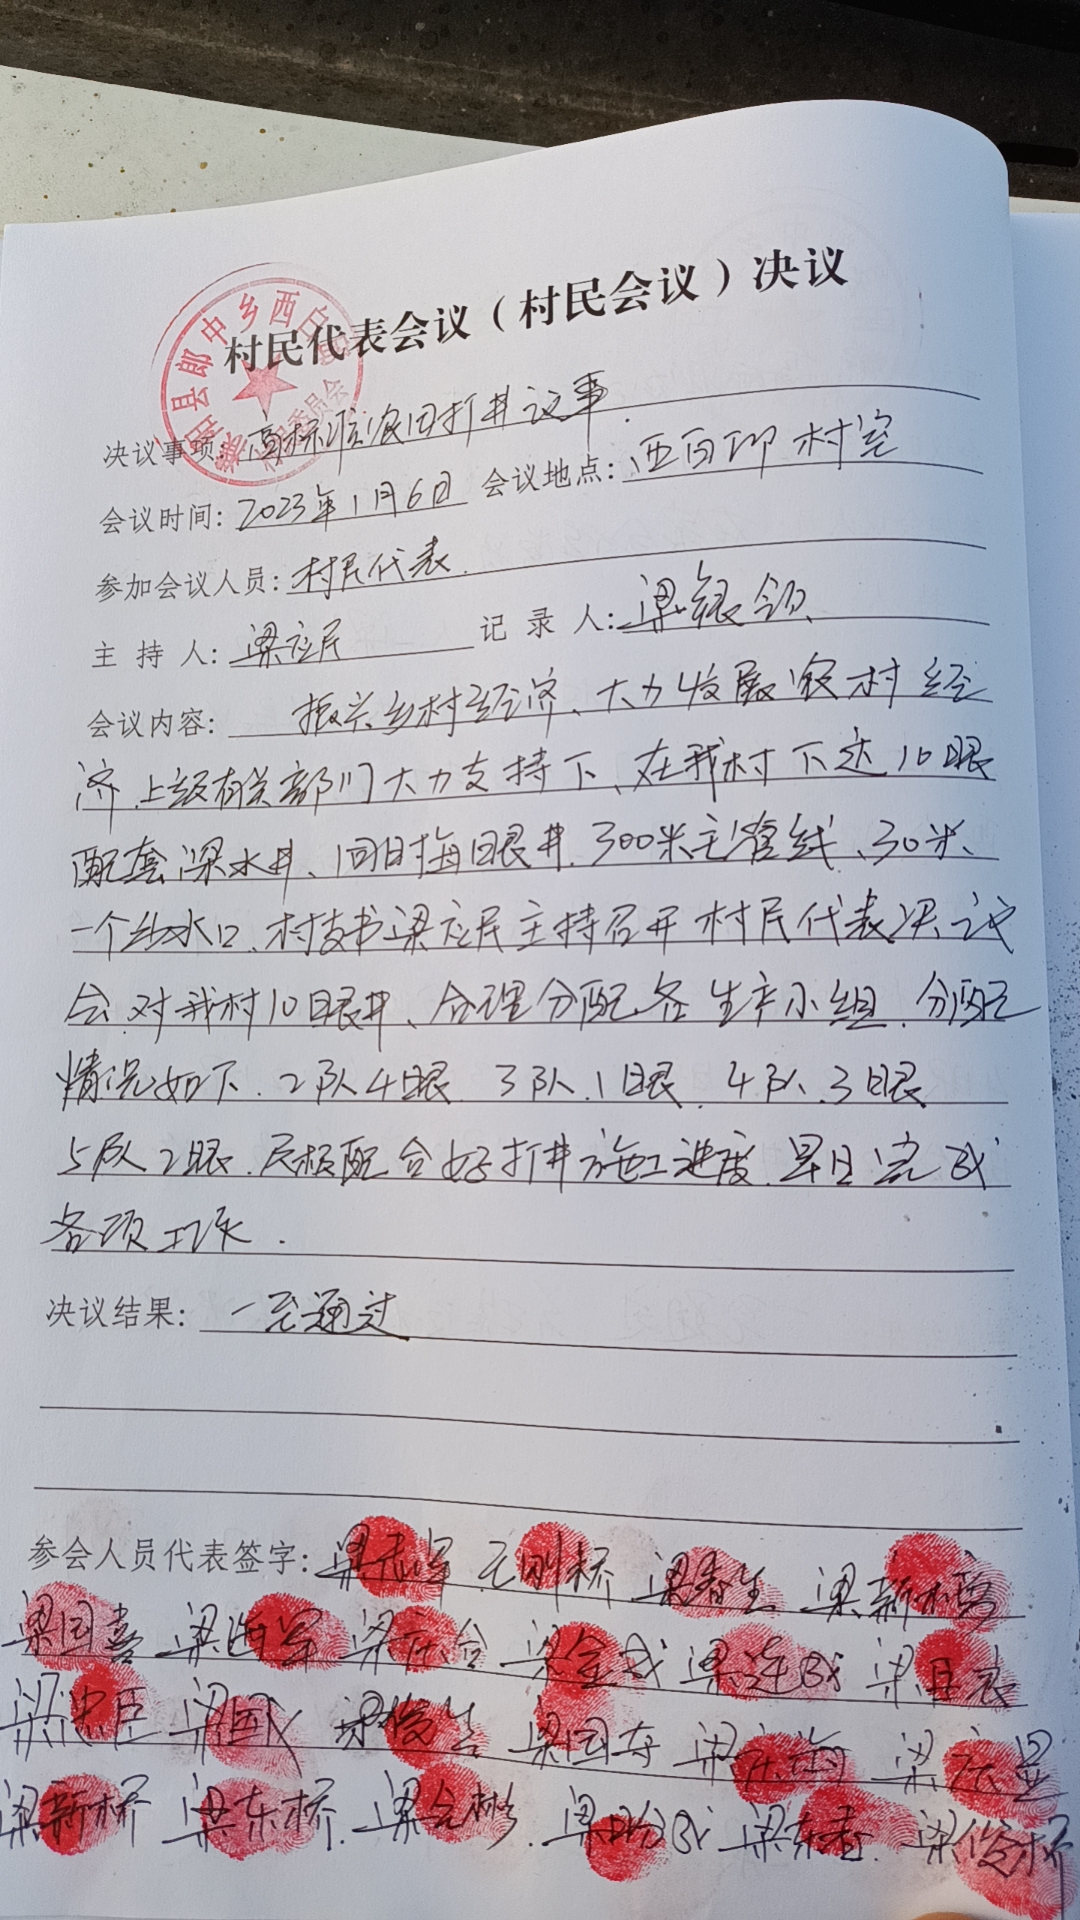 村民代表会议（村民会议）决议
决议事项：高标准农田打井议事.
会议时间：2023年1月6日 会议地点：西白邙村室
参加会议人员：村民代表.
主持人：梁应民 记录人：梁银领
会议内容： 振兴乡村经济、大力发展农村经
济.上级有关部门大力支持下、在我村下达10眼
配套深水井、同时每眼井.300米主管线、30米、
一个出水口、村支书梁应民主持召开村民代表决议
会.对我村10眼井、合理分配各生产小组.分配
情况如下.2队4眼.3队.1眼.4队.3眼
5队2眼.积极配合好打井施工进度.早日完成
各项工作.
决议结果：一至通过
参会人员代表签字： 桥 梁春生 梁新
梁国喜 梁海军 梁庆合 梁金成 梁连成 梁
梁忠臣 梁国 梁发生 梁国奇 梁庆海 梁庆显
梁新桥 梁东桥. 梁 梁 梁东 梁俊桥